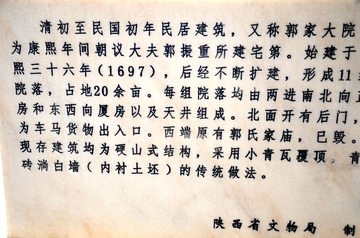 清初至民国初年民居建筑，又称郭家大院
为康熙年间朝议大夫郭振重所建宅第。始建于
熙三十六年（1697），后经不断扩建，形成11
院落，占地20余亩。每组院落均由两进南北向正
房和东西向厦房以及天井组成。北面开有后门，
为车马货物出入口。西端原有郭氏家庙，已毁。
现存建筑均为硬山式结构，采用小青瓦覆顶，青
砖淌白墙（内衬土坯）的传统做法。
陕西省文物局 制